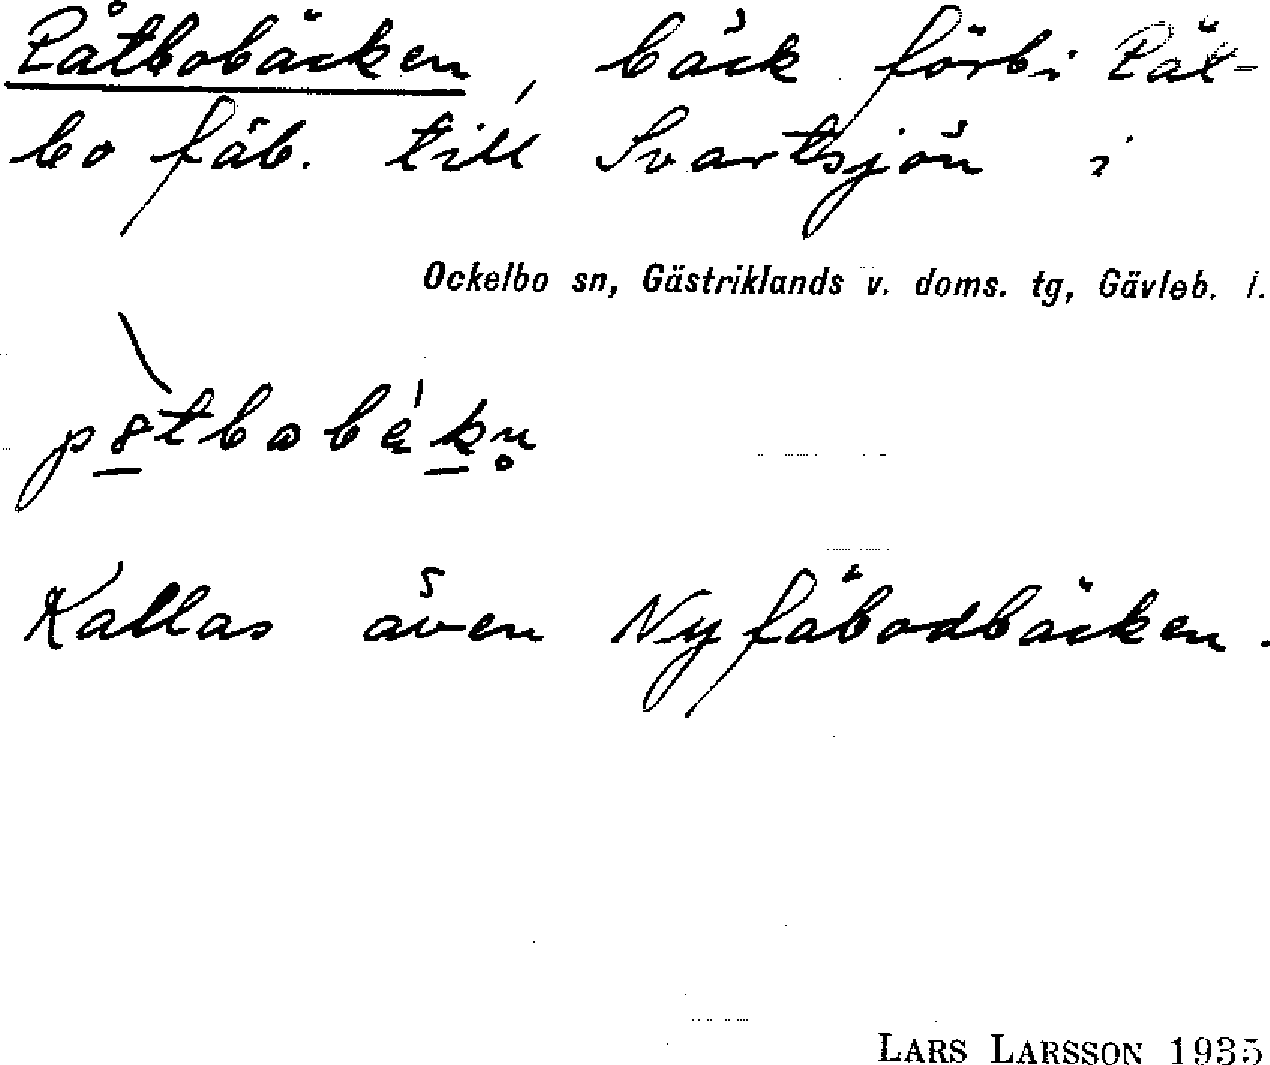 Påtbobäcken, bäck förbi Pät-
bo fäb. till Svartsjön i
Ockelbo sn, Gästriklands v. doms. tg, Gävleb. l.
Kallas även Nyfäbodbäcken.
LARS LARSSON 1935